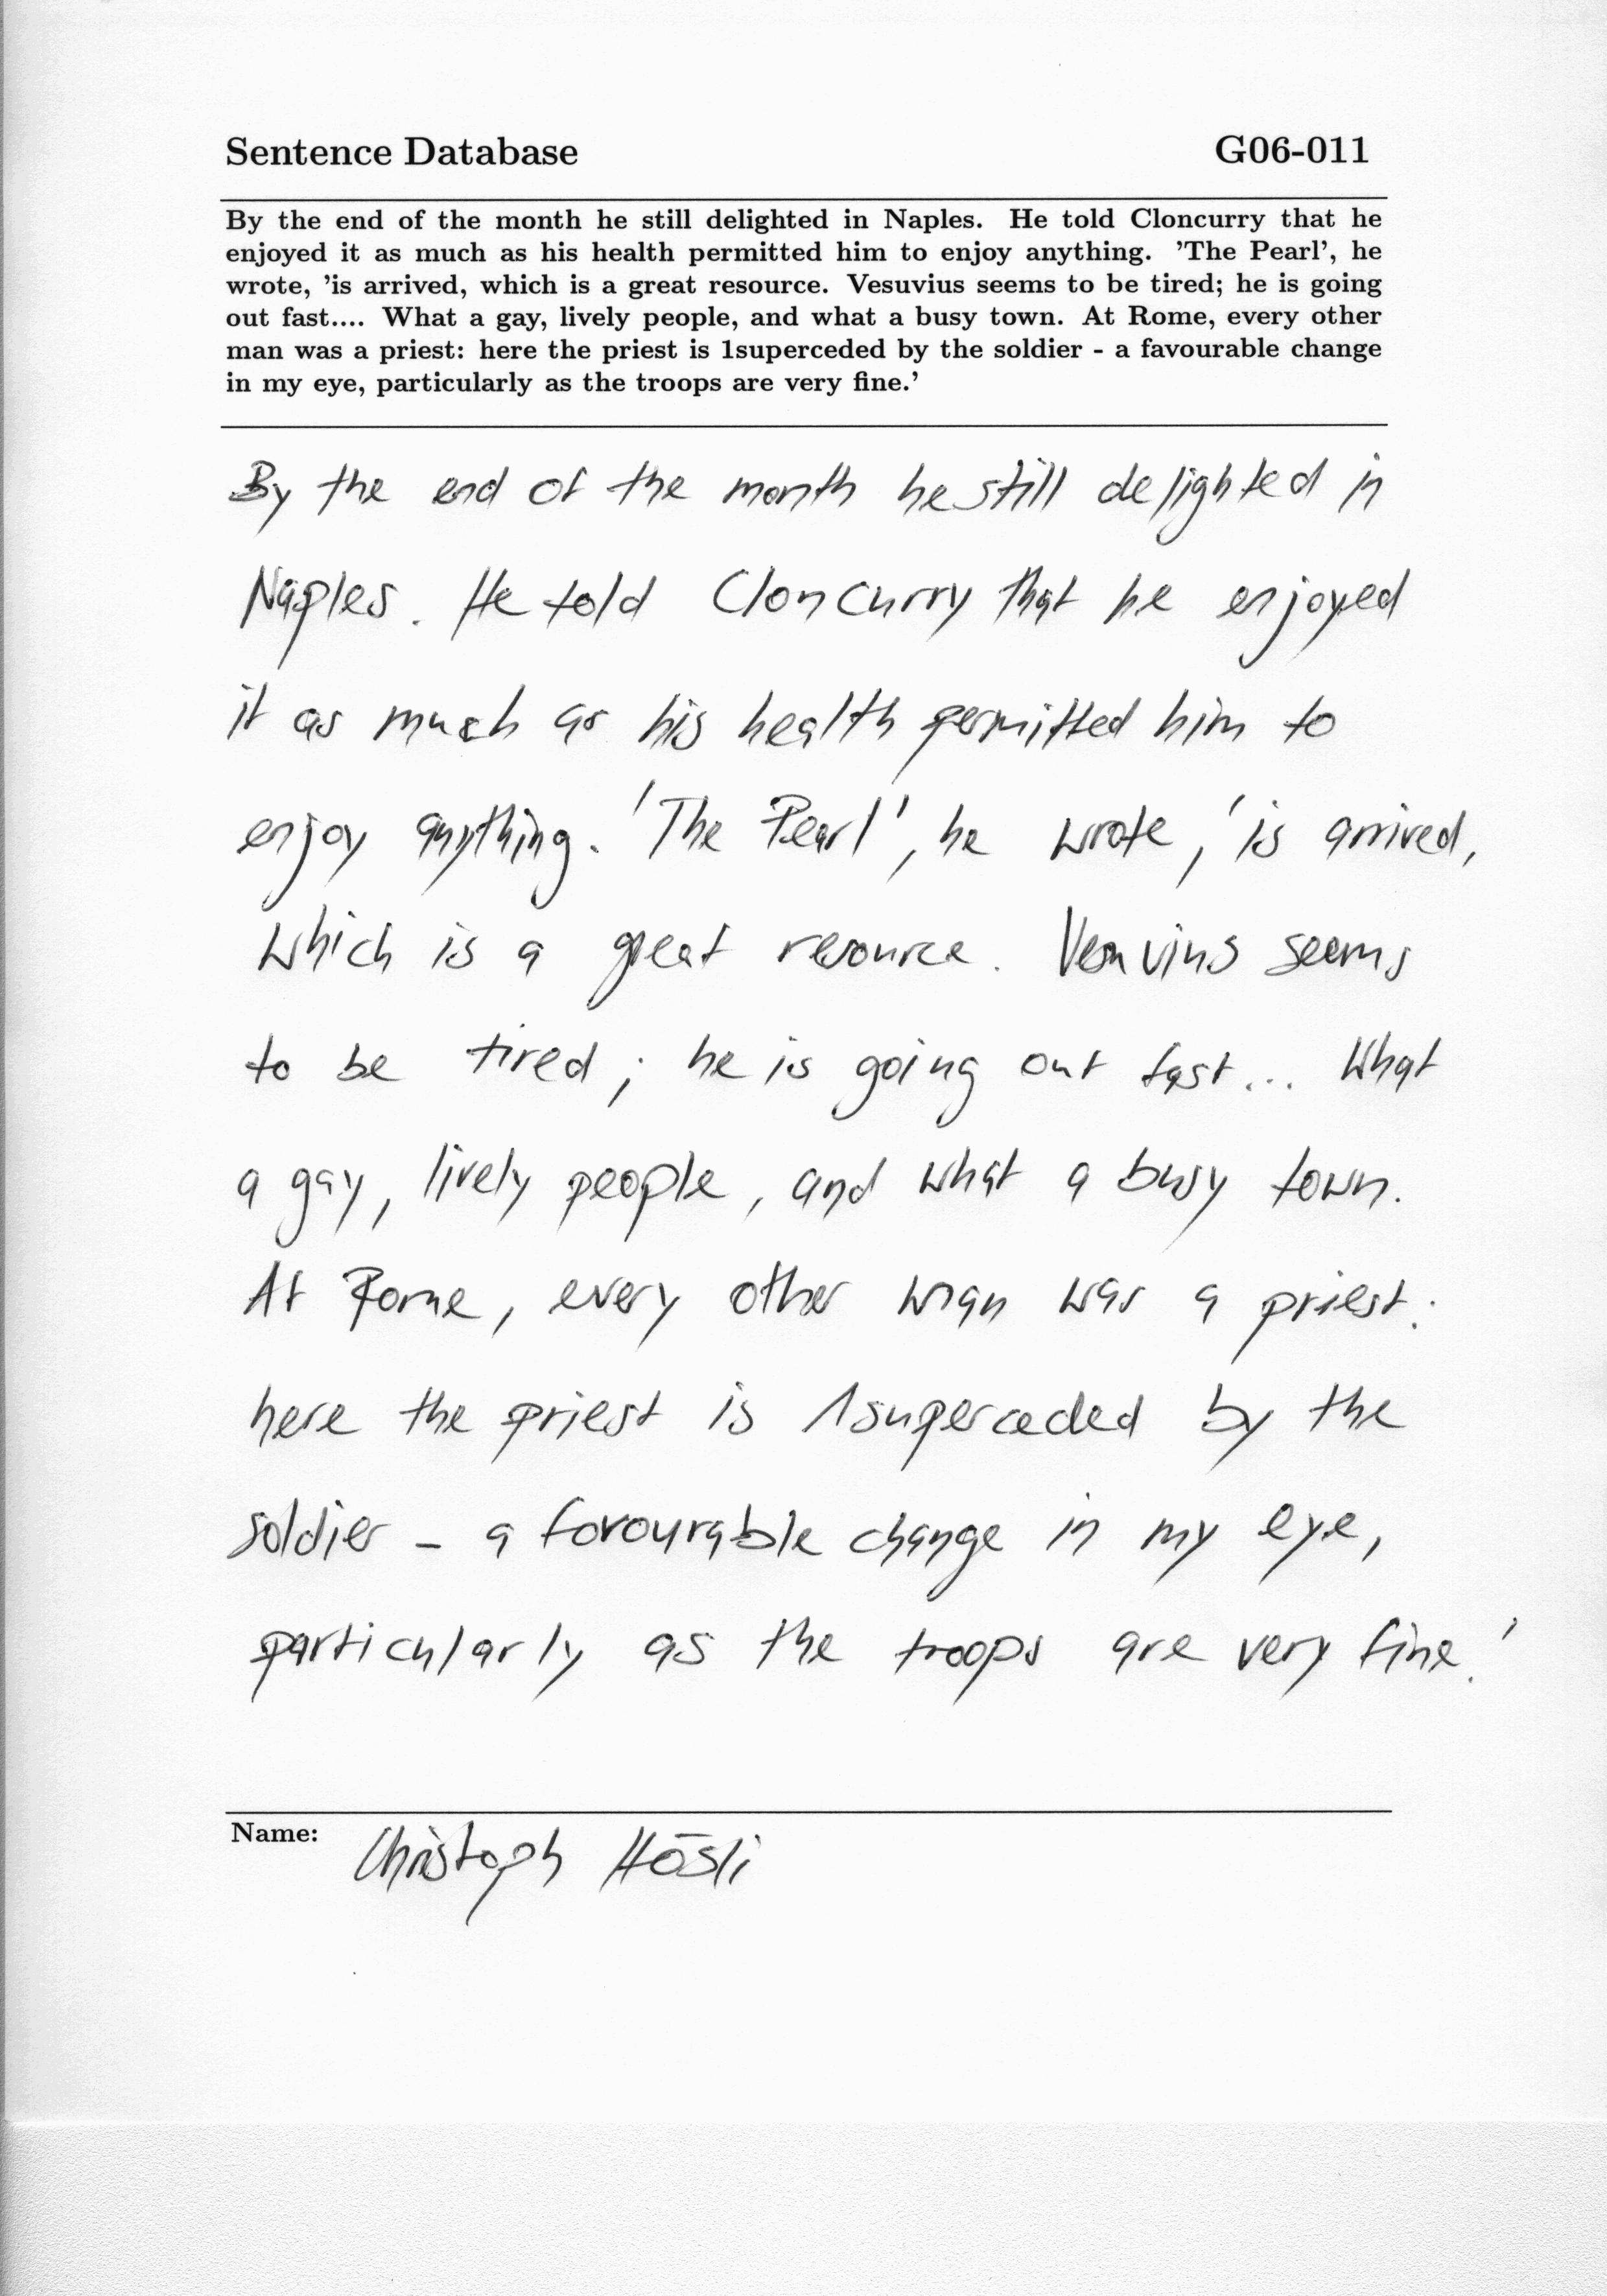 Sentence Database G06-011
By the end of the month he still delighted in Naples. He told Cloncurry that he
enjoyed it as much as his health permitted him to enjoy anything. 'The Pearl', he
wrote, 'is arrived, which is a great resource. Vesuvius seems to be tired; he is going
out fast.... What a gay, lively people, and what a busy town. At Rome, every other
man was a priest: here the priest is 1superceded by the soldier - a favourable change
in my eye, particularly as the troops are very fine.'
By the end of the month he still delighted in
Naples. He told Cloncurry that he enjoyed
it as much as his health permitted him to
enjoy anything. 'The Pearl', he wrote, 'is arrived,
which is a great resource. Vesuvius seems
to be tired; he is going out fast... What
a gay, lively people, and what a busy town.
At Rome, every other man was a priest:
here the priest is 1superceded by the
soldier - a favourable change in my eye,
particularly as the troops are very fine.'
Name: Christoph Hösli